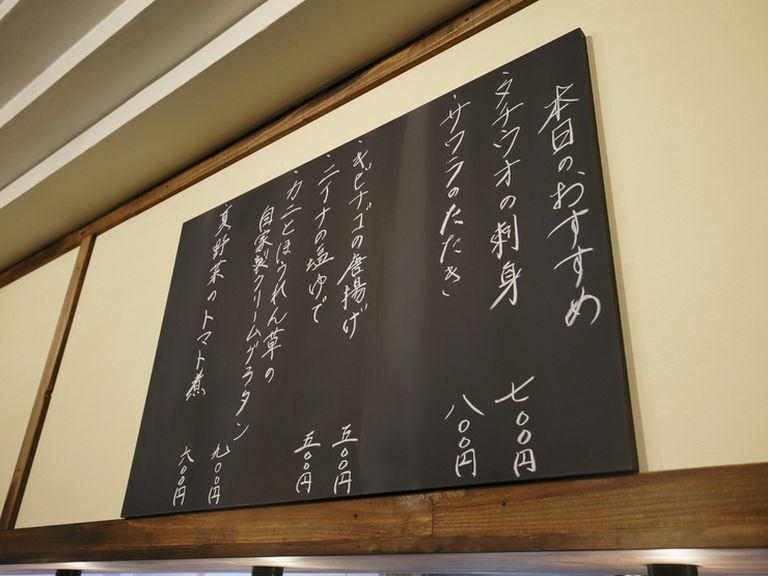 本日のおすすめ
・タチウオの刺身 七〇〇円
・サワラのたたき 八〇〇円
・キビナゴの唐揚げ 五〇〇円
・ニイナの塩ゆで 五〇〇円
・カニとほうれん草の
自家製クリームグラタン 九〇〇円
・夏野菜のトマト煮 六〇〇円